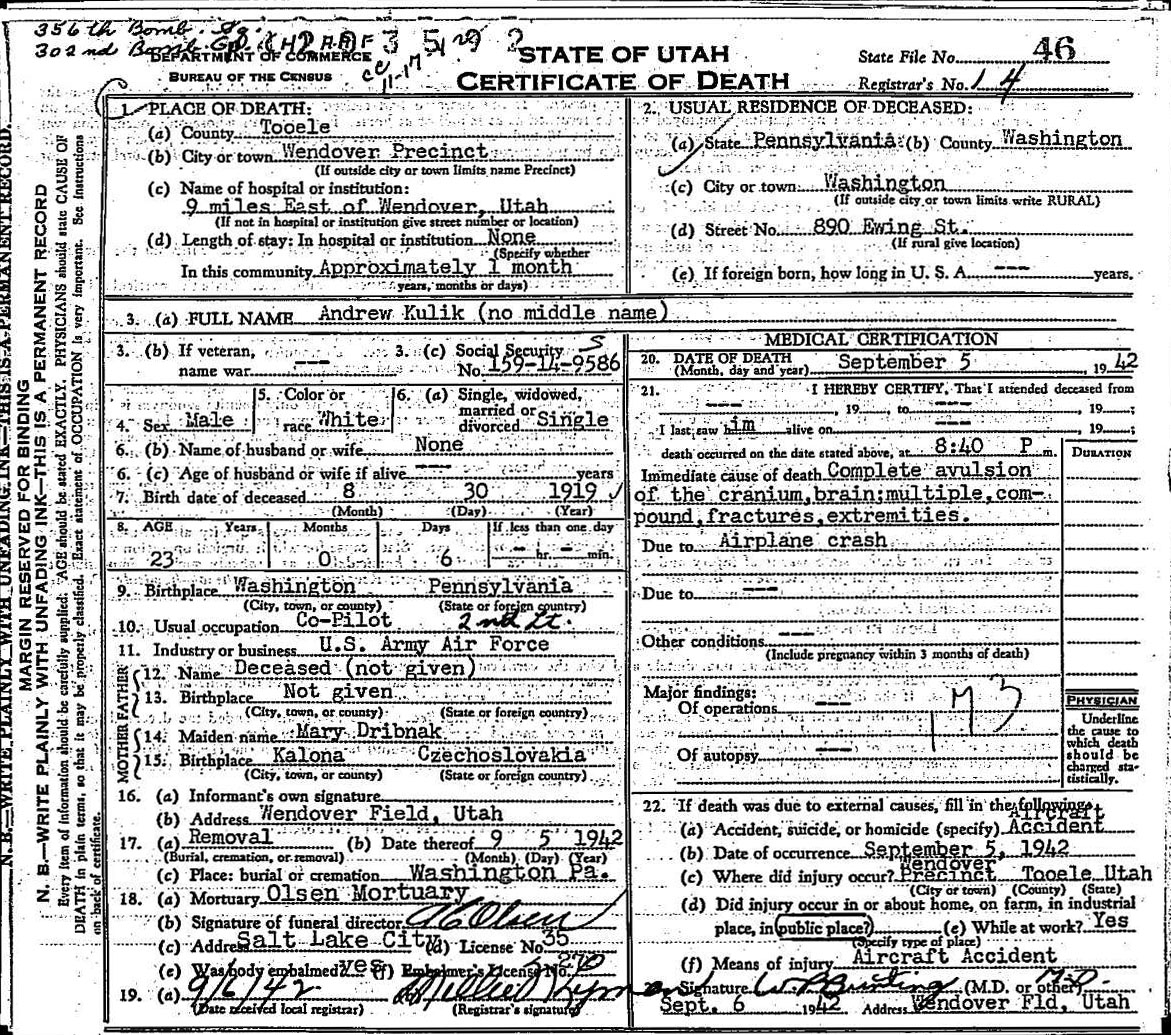 356th Bomb. Sq.
302nd Bomb. Gp. (H)
DEPARTMENT OF COMMERCE
BUREAU OF THE CENSUS
11-17
STATE OF UTAH
CERTIFICATE OF DEATH
State File No. 46
Registrar's No. 14
1. PLACE OF DEATH:
(a) County Tooele
(b) City or town Wendover Precinct
(If outside city or town limits name Precinct)
(c) Name of hospital or institution:
9 miles East of Wendover, Utah
(If not in hospital or institution give street number or location)
(d) Length of stay: In hospital or institution None
(Specify whether
In this community Approximately 1 month
years, months or days)
2. USUAL RESIDENCE OF DECEASED:
(a) State Pennsylvania (b) County Washington
(c) City or town Washington
(If outside city or town limits write RURAL)
(d) Street No. 890 Ewing St.
(If rural give location)
(e) If foreign born, how long in U. S. A. --- years.
3. (a) FULL NAME Andrew Kulik (no middle name)
3. (b) If veteran, name war --- 3. (c) Social Security No. 159-14-9586
S
4. Sex Male
5. Color or race White
6. (a) Single, widowed, married or divorced Single
6. (b) Name of husband or wife None
6. (c) Age of husband or wife if alive --- years
7. Birth date of deceased 8 30 1919
(Month) (Day) (Year)
8. AGE Years Months Days If less than one day
23 0 6 - hr. - min.
9. Birthplace Washington Pennsylvania
(City, town, or county) (State or foreign country)
10. Usual occupation Co-Pilot 2nd Lt.
11. Industry or business U.S. Army Air Force
FATHER
12. Name Deceased (not given)
13. Birthplace Not given
(City, town, or county) (State or foreign country)
MOTHER
14. Maiden name Mary Dribnak
15. Birthplace Kalona Czechoslovakia
(City, town, or county) (State or foreign country)
16. (a) Informant's own signature
(b) Address Wendover Field, Utah
17. (a) Removal (b) Date thereof 9 5 1942
(Burial, cremation, or removal) (Month) (Day) (Year)
(c) Place: burial or cremation Washington Pa.
18. (a) Mortuary Olsen Mortuary
(b) Signature of funeral director Olsen
(c) Address Salt Lake City (d) License No. 35
(e) Was body embalmed? yes (f) Embalmer's License No. 270
19. (a) 9/6/42
(Date received local registrar) (Registrar's signature)
MEDICAL CERTIFICATION
20. DATE OF DEATH September 5 1942
(Month, day and year)
21. I HEREBY CERTIFY, That I attended deceased from
---, 19, to ---, 19;
I last saw him alive on ---, 19;
death occurred on the date stated above, at 8:40 P m.
DURATION
Immediate cause of death Complete avulsion
of the cranium, brain; multiple, com-
pound, fractures, extremities.
Due to Airplane crash
Due to ---
Other conditions ---
(Include pregnancy within 3 months of death)
Major findings:
Of operations ---
Of autopsy ---
173
PHYSICIAN
Underline
the cause to
which death
should be
charged sta-
tistically.
22. If death was due to external causes, fill in the following:
(a) Accident, suicide, or homicide (specify) Aircraft Accident
(b) Date of occurrence September 5, 1942
(c) Where did injury occur? Wendover Precinct Tooele Utah
(City or town) (County) (State)
(d) Did injury occur in or about home, on farm, in industrial
place, in public place? (e) While at work? Yes
(Specify type of place)
(f) Means of injury Aircraft Accident
Signature (M.D. or other) M.D
Sept. 6 1942 Address Wendover Fld, Utah
N. B.—WRITE PLAINLY WITH UNFADING INK—THIS IS A PERMANENT RECORD.
MARGIN RESERVED FOR BINDING
N. B.—WRITE PLAINLY WITH UNFADING INK—THIS IS A PERMANENT RECORD
Every item of information should be carefully supplied. AGE should be stated EXACTLY. PHYSICIANS should state CAUSE OF
DEATH in plain terms, so that it may be properly classified. Exact statement of OCCUPATION is very important. See instructions
on back of certificate.